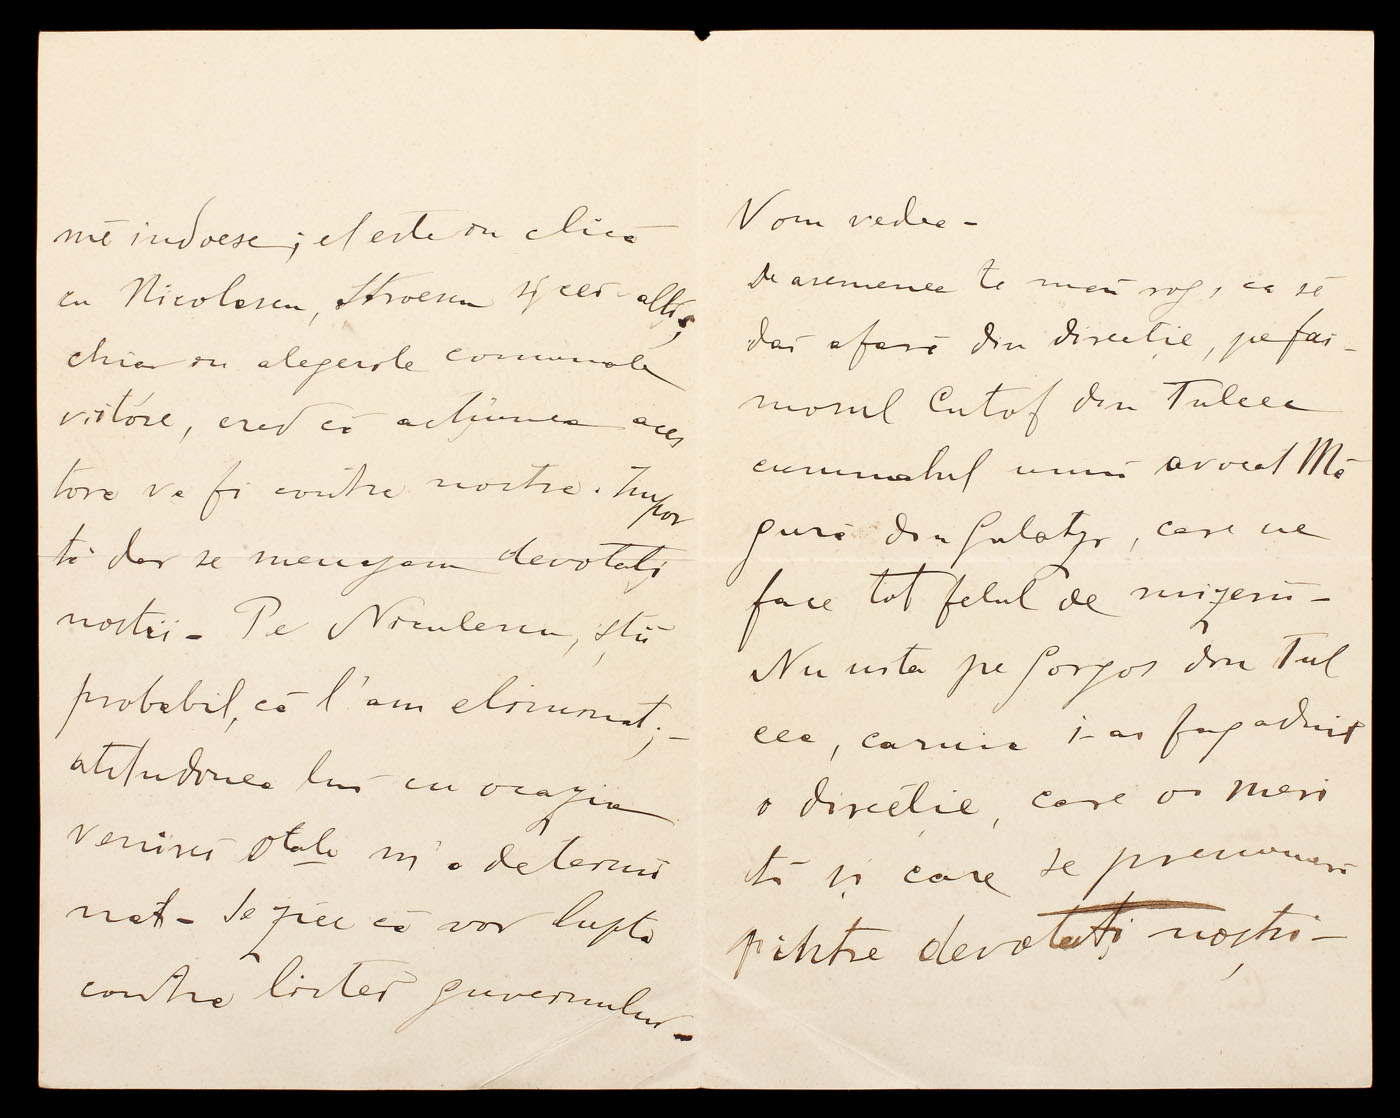 mĕ indoesc; el este in clică
cu Nicolescu, Stroescu și cei-alți;
chiar in alegerile comunale
viitóre, cred că acțiunea aces
tora va fi contra nostra. Impor
tă dar se menajam devotați
nostrii - Pe Niculescu, știi
probabil, că l'am eliminat; -
atitudinea lui cu ocazia
venirei D-tale m'a determi
nat - Se zice că vor lupta
contra listei guvernului -
Vom vedea -
De asemenea te mai rog, ca să
dai afară din direcție, pe fai-
mosul Cutof din Tulcea
cumnatul unui avocat Mă
gură din Galatz, care ne
face tot felul de mizerii -
Nu uita pe Gorgos din Tul
cea, caruia i-ai fagaduit
o direcție, care o meri
tă și care se prenumeră
pintre devotați noștri -